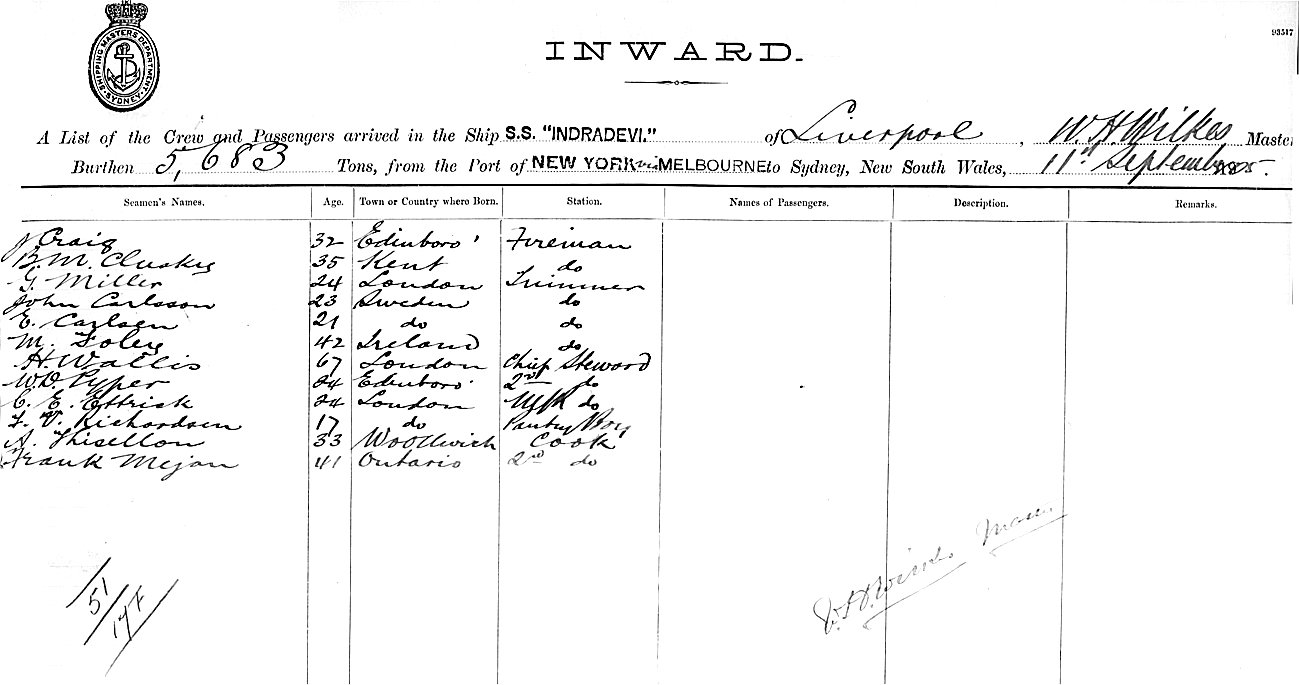 SHIPPING MASTERS DEPARTMENT SYDNEY
93517
INWARD.
A List of the Crew and Passengers arrived in the Ship S.S. "INDRADEVI." of Liverpool, W. H. Wilkes Master
Burthen 5,683 Tons, from the Port of NEW YORK via MELBOURNE to Sydney, New South Wales, 11th September
Seamen's Names. Age. Town or Country where Born. Station. Names of Passengers. Description. Remarks.
J Craig 32 Edinboro' Fireman
B. M. Cluskey 35 Kent do
G. Miller 24 London Trimmer
John Carlsson 23 Sweden do
E. Carlsen 21 do do
M. Foley 42 Ireland do
H. Wallis 67 London Chief Steward
W. D. Pyper 24 Edinboro' 2nd do
C. E. Ettrick 24 London M/R do
F. V. Richardson 17 do Pantry Boy
A. Thisellon 33 Woolwich Cook
Frank Mejan 41 Ontario 2nd do
51